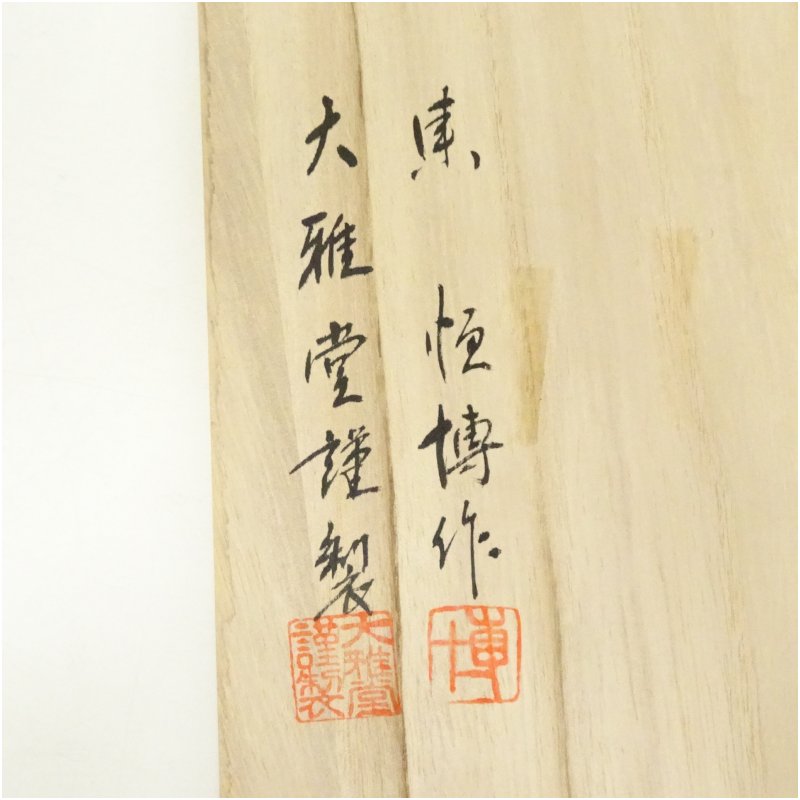 恒博作
博
大雅堂謹製
大雅堂謹製